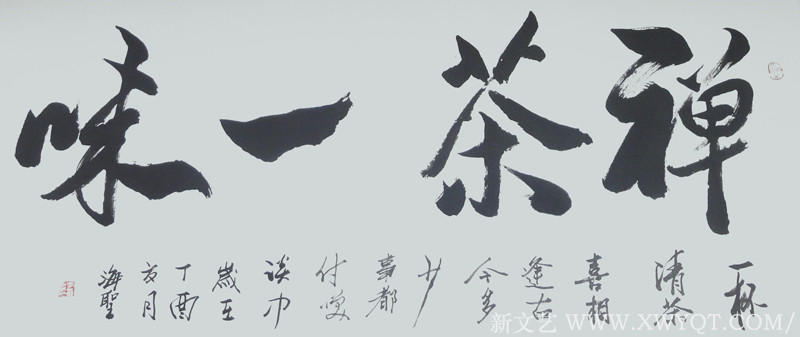 禅茶一味
一杯
清茶
喜相
逢古
今多
少
事都
付咲
谈中
歲在
丁酉
海聖
新文艺 WWW.XWYQT.COM